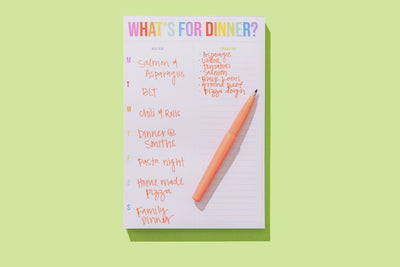 WHAT'S FOR DINNER?
M
Salmon &
Asparagus
T
BLT
W
Chili & Rolls
T
Dinner @
Smiths
F
Pasta night
S
Home made
Pizza
S
Family
Dinner
· Asparagus
· Tomatoes
· Salmon
· Black beans
· Ground beef
· Pizza dough